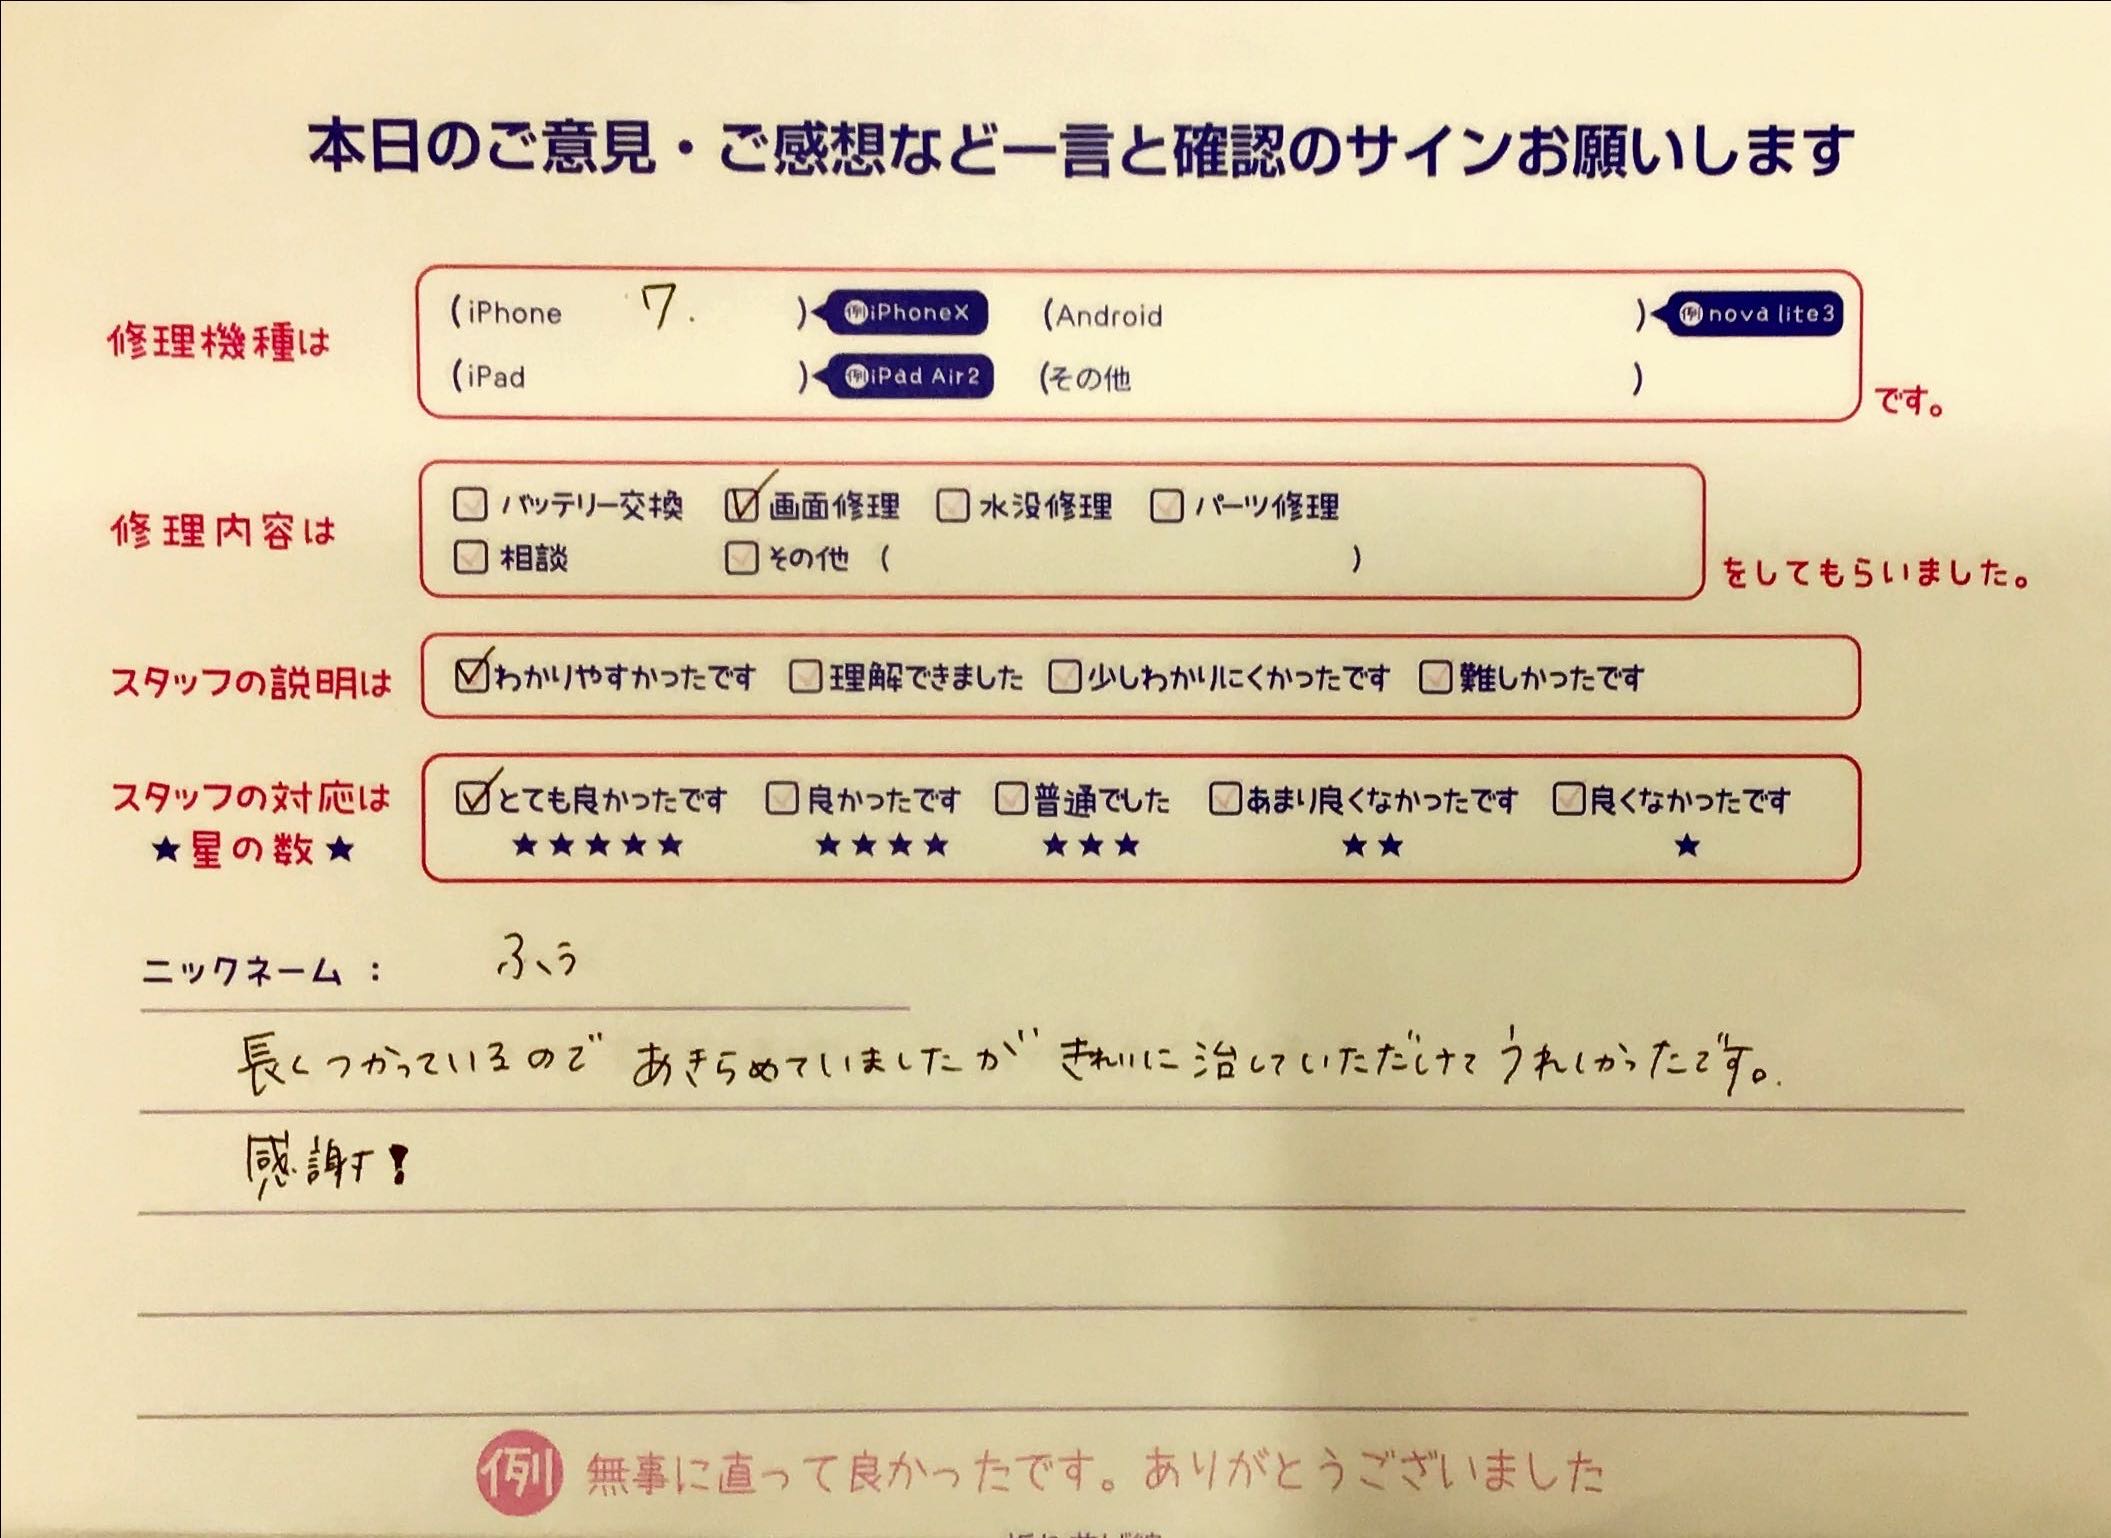 本日のご意見・ご感想など一言と確認のサインお願いします
修理機種は
(iPhone 7. ) 例iPhoneX (Android ) 例nova lite3
(iPad ) 例iPad Air2 (その他 )
です。
修理内容は
バッテリー交換 画面修理 水没修理 パーツ修理
相談 その他 ( )
をしてもらいました。
スタッフの説明は わかりやすかったです 理解できました 少しわかりにくかったです 難しかったです
スタッフの対応は とても良かったです 良かったです 普通でした あまり良くなかったです 良くなかったです
★星の数★ ★★★★★ ★★★★ ★★★ ★★ ★
ニックネーム： ふぅ
長くつかっているので あきらめていましたが きれいに治していただけて うれしかったです。
感謝!
例 無事に直って良かったです。ありがとうございました